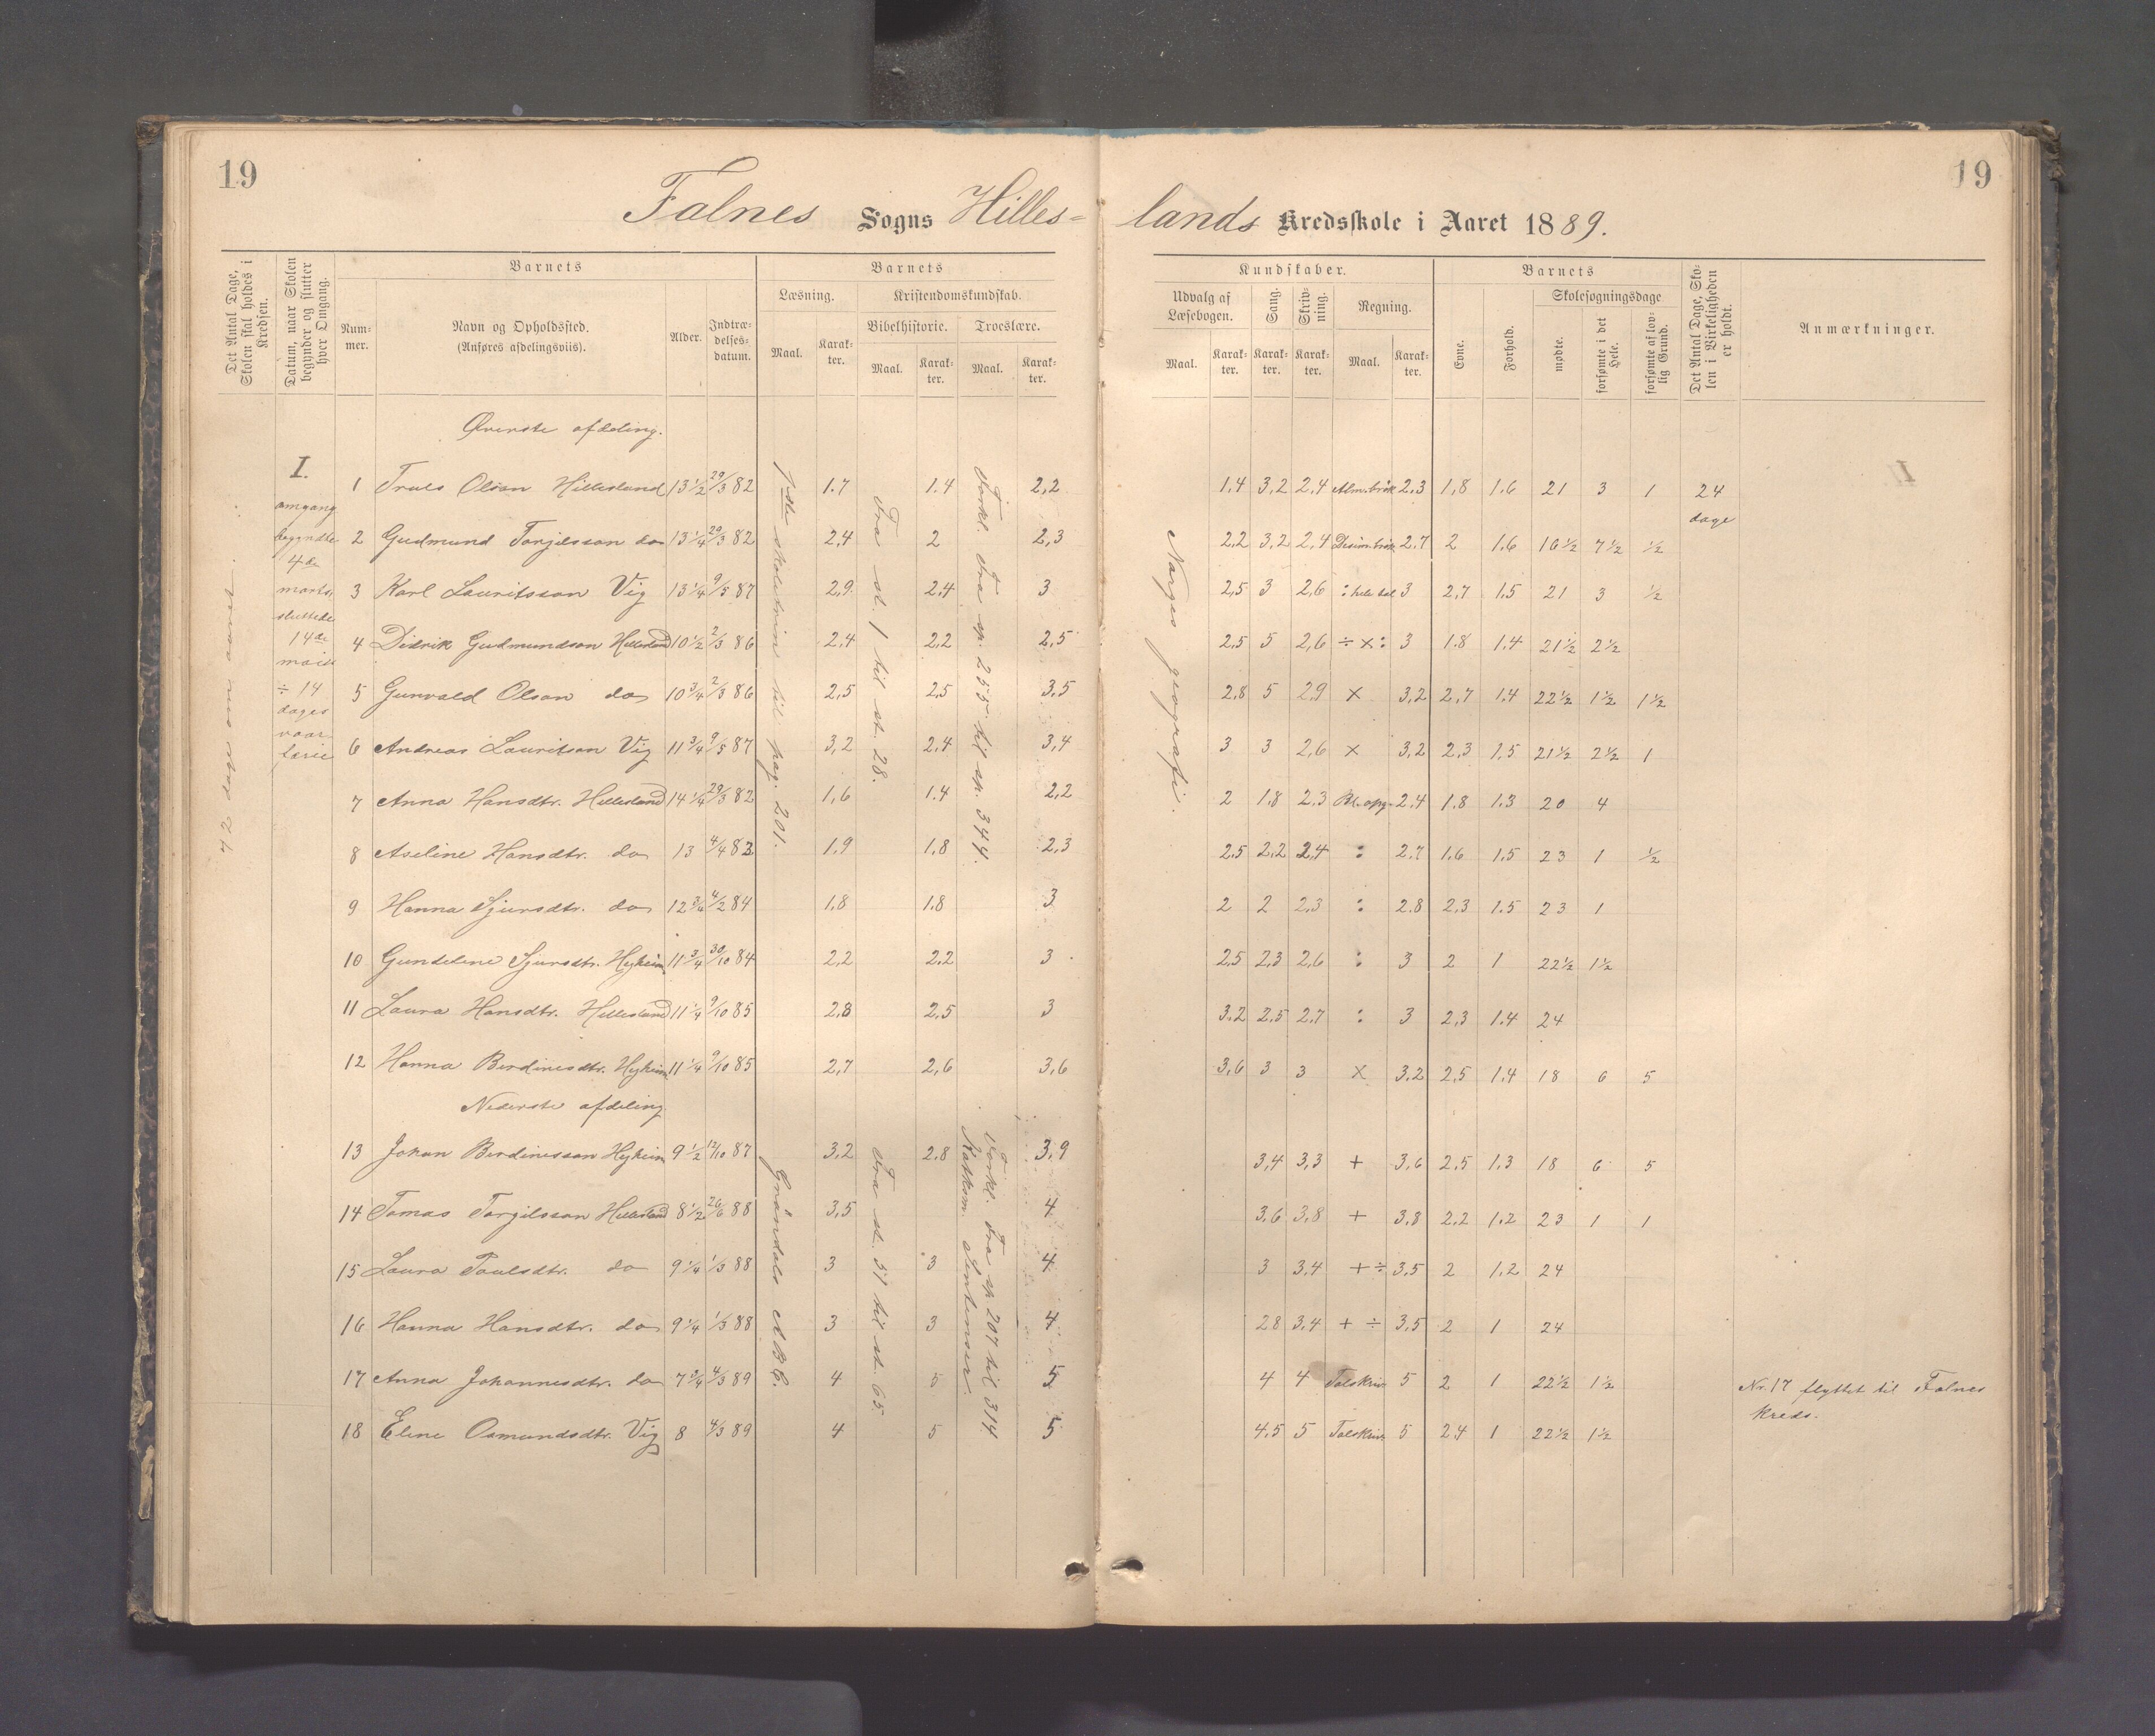 19
19
Falnes Sogns Hilles-
lands Kredsskole i Aaret 1889.
Det Antal Dage, Skolen skal holdes i Kredsen.
Datum, naar Skolen begynder og slutter hver Omgang.
Barnets
Nummer.
Navn og Opholdssted.
(Anføres afdelingsviis).
Alder.
Indtrædelsesdatum.
Barnets
Læsning.
Kristendomskundskab.
Bibelhistorie.
Troeslære.
Maal.
Karakter.
Maal.
Karakter.
Maal.
Karakter.
Kundskaber.
Udvalg af Læsebogen.
Sang.
Skrivning.
Regning.
Maal.
Karakter.
Karakter.
Karakter.
Maal.
Karakter.
Barnets
Evne.
Forhold.
Skolesøgningsdage
mødte.
forsømte i det Hele.
forsømte af lovlig Grund.
Det Antal Dage, Skolen i Virkeligheden er holdt.
Anmærkninger.
Øverste afdeling.
I.
omgang
begyndte
4de
marts,
sluttede
14de
mai
÷ 14
dages
vaar
ferie
1ste skoletrin til pag. 201.
Fra st. 1 til st. 28.
Forkl. fra sp. 255 til sp. 344.
Norges geografi.
1 Truls Olson Hillesland 13 1/2 29/3 82 1.7 1.4 2,2 1,4 3,2 2,4 Alm.brøk 2.3 1,8 1.6 21 3 1 24 dage
2 Gudmund Torjilsson do 13 1/4 29/3 82 2,4 2 2,3 2,2 3,2 2,4 Desim.brøk 2.7 2 1.6 16 1/2 7 1/2 1/2
3 Karl Lauritsson Vig 13 1/4 9/5 87 2,9 2,4 3 2,5 3 2,6 : hele tal 3 2,7 1,5 21 3 1/2
4 Didrik Gudmundson Hillesland 10 1/2 2/3 86 2,4 2,2 2,5 2,5 5 2,6 ÷ x : 3 1.8 1.4 21 1/2 2 1/2
5 Gunvald Olson do 10 3/4 2/3 86 2,5 2,5 3,5 2,8 5 2,9 x 3,2 2,7 1,4 22 1/2 1 1/2 1 1/2
6 Andreas Lauritson Vig 11 3/4 9/5 87 3,2 2,4 3,4 3 3 2,6 x 3,2 2,3 1,5 21 1/2 2 1/2 1
7 Anna Hansdtr. Hillesland 14 1/4 29/3 82 1,6 1.4 2,2 2 1.8 2.3 Bl. opg. 2.4 1.8 1.3 20 4
8 Aseline Hansdtr. do 13 4/4 83 1.9 1.8 2,3 2,5 2,2 2,4 : 2.7 1.6 1.5 23 1 1/2
9 Hanna Sjursdtr. do 12 3/4 4/2 84 1,8 1.8 3 2 2 2,3 : 2.8 2,3 1.5 23 1
10 Gundeline Sjursdtr. Hejheim 11 3/4 30/10 84 2,2 2.2 3 2,5 2,3 2,6 : 3 2 1 22 1/2 1 1/2
11 Laura Hansdtr. Hillesland 11 1/4 9/10 85 2,8 2,5 3 3.2 2,5 2,7 : 3 2,3 1.4 24
12 Hanna Berdinesdtr. Hejheim 11 1/4 9/10 85 2,7 2,6 3,6 3,6 3 3 x 3.2 2,5 1.4 18 6 5
Nederste afdeling
Grøndals ABC.
Fra st. 57 til st. 65
Forkl. fra sp 207 til 314
13 Johan Berdinesson Hejheim 9 1/2 12/10 87 3,2 2.8 3,9 3,4 3,3 + 3,6 2,5 1.3 18 6 5
14 Tomas Torgilsson Hillesland 8 1/2 26/6 88 3,5 4 3,6 3,8 + 3,8 2,2 1.2 23 1 1
15 Laura Paulsdtr. do 9 1/4 1/3 88 3 3 4 3 3,4 + ÷ 3,5 2 1,2 24
16 Hanna Hansdtr. do 9 1/4 1/3 88 3 3 4 2,8 3,4 + ÷ 3,5 2 1 24
17 Anna Johannesdtr. do 7 3/4 4/3 89 4 5 5 4 4 Talskriv. 5 2 1 22 1/2 1 1/2 Nr. 17 flyttet til Falnes kreds.
18 Eline Osmundsdtr. Vig 8 4/3 89 4 5 5 4.5 5 Talskriv. 5 2,4 1 22 1/2 1 1/2